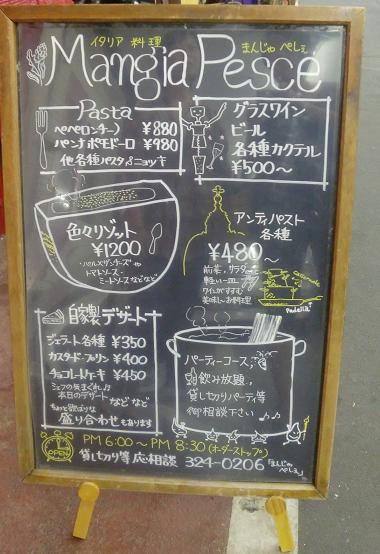 イタリア 料理
まんじゃ ぺしぇ
Mangia Pesce
Pasta
ペペロンチーノ ¥880
パンナポモドーロ ¥980
他各種パスタ&ニョッキ
グラスワイン
ビール
各種カクテル
¥500〜
色々リゾット
¥1200
・パルメザンチーズや
トマトソース・
ミートソースなどなど
アンティパスト
各種
¥480〜
前菜、サラダ、
軽い一皿
ワインがすすむ
美味しいお料理
Padella
自家製デザート
ジェラート各種 ¥350
カスタードプリン ¥400
チョコレートケーキ ¥450
シェフの気まぐれ
本日のデザート
などなど
ちょっと欲ばりな
盛り合わせもあります
パーティーコース
飲み放題,
貸し切りパーティ等
御相談下さい
OPEN
PM 6:00〜 PM 8:30 (オーダーストップ)
貸し切り等 応相談 324-0206 「まんじゃ ぺしぇ」